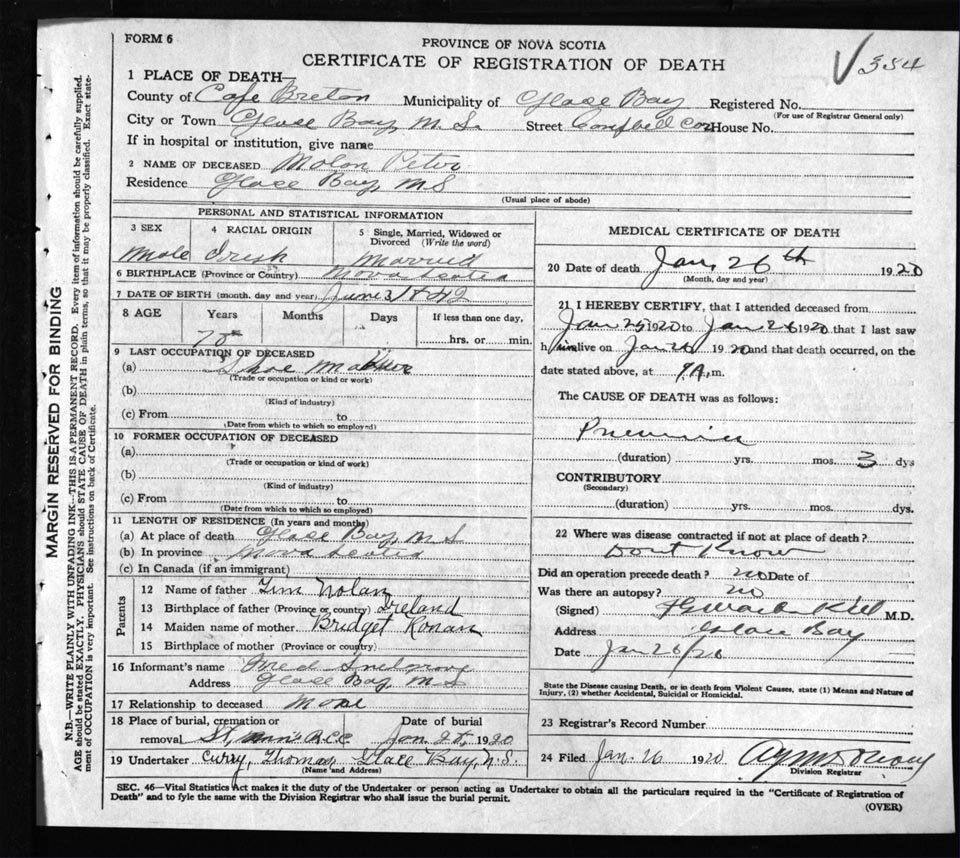 FORM 6
PROVINCE OF NOVA SCOTIA
CERTIFICATE OF REGISTRATION OF DEATH
354
1 PLACE OF DEATH—
County of Cape Breton Municipality of Glace Bay Registered No.
(For use of Registrar General only)
City or Town Glace Bay, N. S. Street Campbell Cor House No.
If in hospital or institution, give name
2 NAME OF DECEASED Nolan Peter
Residence Glace Bay, N S
(Usual place of abode)
PERSONAL AND STATISTICAL INFORMATION
3 SEX 4 RACIAL ORIGIN 5 Single, Married, Widowed or
Divorced (Write the word)
Male Irish Married
6 BIRTHPLACE (Province or Country) Nova Scotia
7 DATE OF BIRTH (month, day and year) June
8 AGE Years Months Days If less than one day,
75 hrs. or min.
9 LAST OCCUPATION OF DECEASED
(a) Shoe Maker
(Trade or occupation or kind or work)
(b)
(Kind of industry)
(c) From to
(Date from which to which so employed)
10 FORMER OCCUPATION OF DECEASED
(a)
(Trade or occupation or kind of work)
(b)
(Kind of industry)
(c) From to
(Date from which to which so employed)
11 LENGTH OF RESIDENCE (In years and months)
(a) At place of death Glace Bay, N S
(b) In province Nova Scotia
(c) In Canada (if an immigrant)
Parents
12 Name of father Tim Nolan
13 Birthplace of father (Province or country) Ireland
14 Maiden name of mother Bridget Ronan
15 Birthplace of mother (Province or country)
16 Informant's name Fred
Address Glace Bay, N S
17 Relationship to deceased None
18 Place of burial, cremation or Date of burial
removal St, Ann's Jan 28, 1920
19 Undertaker Curry, Thomas Glace Bay, N. S.
(Name and Address)
MEDICAL CERTIFICATE OF DEATH
20 Date of death Jan, 26th 1920
(Month, day and year)
21 I HEREBY CERTIFY, that I attended deceased from
Jan 25 1920 to Jan 26 1920 that I last saw
him alive on Jan 1920 and that death occurred, on the
date stated above, at 9 A. m.
The CAUSE OF DEATH was as follows:
Pneumonia
(duration) yrs. mos. 3 dys
CONTRIBUTORY
(Secondary)
(duration) yrs. mos. dys.
22 Where was disease contracted if not at place of death?
Dont Know
Did an operation precede death? no Date of
Was there an autopsy? no
(Signed) M.D.
Address Glace Bay
Date Jan 26/20
State the Disease causing Death, or in death from Violent Causes, state (1) Means and Nature of
Injury, (2) whether Accidental, Suicidal or Homicidal.
23 Registrar's Record Number
24 Filed Jan. 26 1920
Division Registrar
SEC. 46—Vital Statistics Act makes it the duty of the Undertaker or person acting as Undertaker to obtain all the particulars required in the "Certificate of Registration of
Death" and to fyle the same with the Division Registrar who shall issue the burial permit.
(OVER)
MARGIN RESERVED FOR BINDING
N.B.—WRITE PLAINLY WITH UNFADING INK—THIS IS A PERMANENT RECORD. Every item of information should be carefully supplied.
AGE should be stated EXACTLY. PHYSICIANS should STATE CAUSE OF DEATH in plain terms, so that it may be properly classified. Exact state-
ment of OCCUPATION is very important. See instructions on back of Certificate.